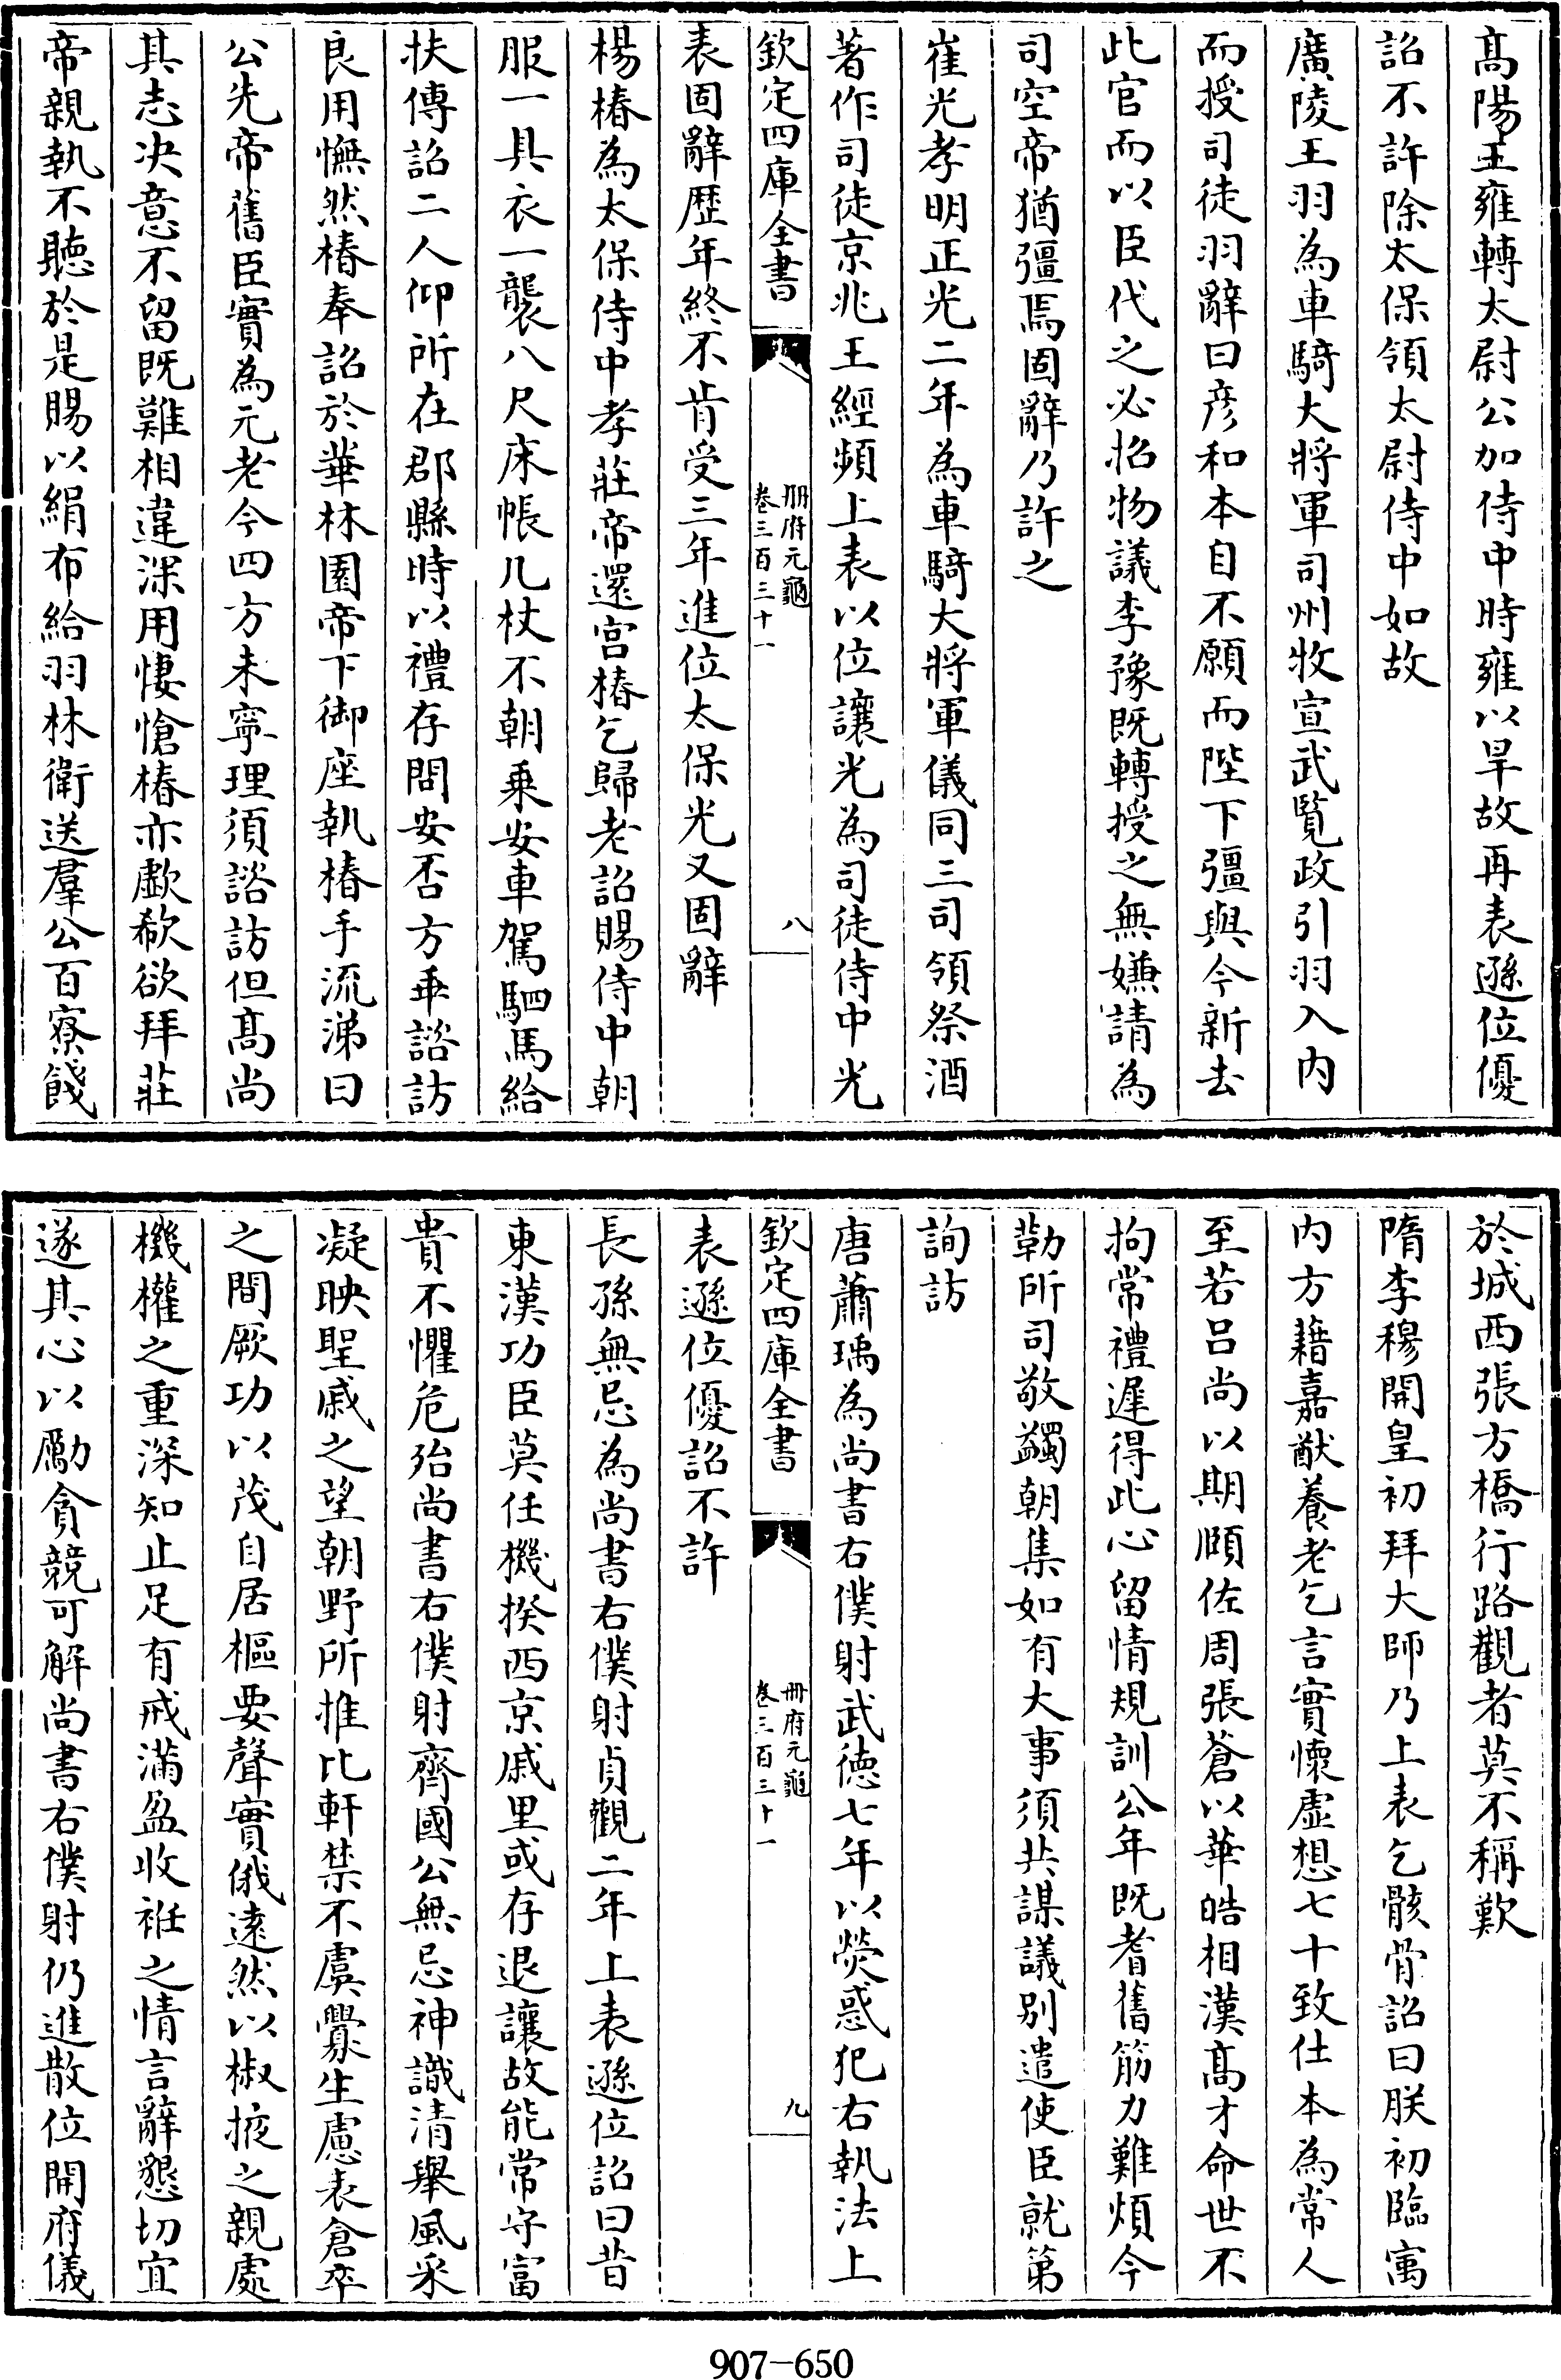 髙陽王雍轉太尉公加侍中時雍以旱故再表遜位優
詔不許除太保領太尉侍中如故
廣陵王羽為車騎大將軍司州牧宣武覽政引羽入内
而授司徒羽辭曰彦和本自不願而陛下彊與今新去
此官而以臣代之必招物議李豫既轉授之無嫌請為
司空帝猶彊焉固辭乃許之
崔光孝明正光二年為車騎大將軍儀同三司領祭酒
著作司徒京兆王經頻上表以位讓光為司徒侍中光
欽定四庫全書
冊府元龜
卷三百三十一
八
表固辭歴年終不肯受三年進位太保光又固辭
楊椿為太保侍中孝莊帝還宫椿乞歸老詔賜侍中朝
服一具衣一襲八尺床帳几杖不朝乗安車駕駟馬給
扶傳詔二人仰所在郡縣時以禮存問安否方乖諮訪
良用憮然椿奉詔於華林園帝下御座執椿手流涕曰
公先帝舊臣實為元老今四方未寧理須諮訪但髙尚
其志决意不留既難相違深用悽愴椿亦歔欷欲拜莊
帝親執不聽於是賜以絹布給羽林衛送羣公百寮餞
於城西張方橋行路觀者莫不稱歎
隋李穆開皇初拜大師乃上表乞骸骨詔曰朕初臨寓
内方藉嘉猷養老乞言實懷虚想七十致仕本為常人
至若吕尚以期頤佐周張蒼以華皓相漢髙才命世不
拘常禮遲得此心留情規訓公年既耆舊筋力難煩今
勒所司敬蠲朝集如有大事須共謀議别遣使臣就第
詢訪
唐蕭瑀為尚書右僕射武徳七年以熒惑犯右執法上
欽定四庫全書
冊府元龜
卷三百三十一
九
表遜位優詔不許
長孫無忌為尚書右僕射貞觀二年上表遜位詔曰昔
東漢功臣莫任機揆西京戚里或存退讓故能常守富
貴不懼危殆尚書右僕射齊國公無忌神識清舉風采
凝映聖戚之望朝野所推比軒禁不虞釁生慮表倉卒
之間厥功以茂自居樞要聲實俄逺然以椒掖之親處
機權之重深知止足有戒滿盈收袵之情言辭懇切宜
遂其心以勵貪競可解尚書右僕射仍進散位開府儀
907-650